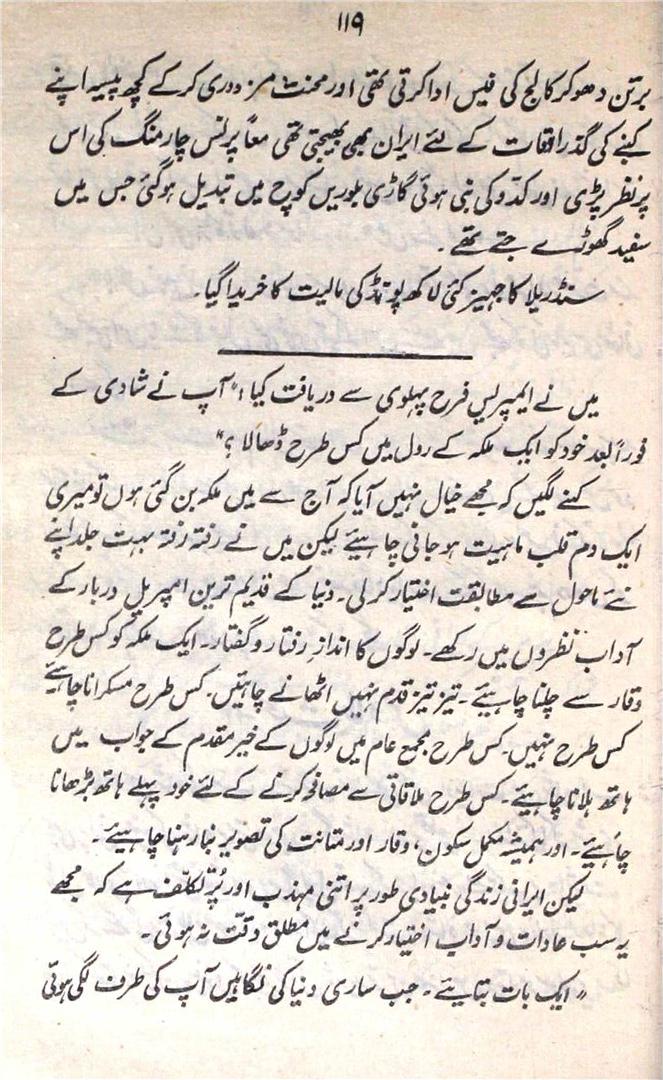 ۱۱۹
برتن دھو کر کالج کی فیس ادا کرتی تھی اور محنت مزدوری کر کے کچھ پیسہ اپنے
کنبے کی گذر اوقات کے لئے ایران بھی بھیجتی تھی معاً پرنس چارمنگ کی اس
پر نظر پڑی اور کدّو کی بنی ہوئی گاڑی بلوریں کوچ میں تبدیل ہو گئی جس میں
سفید گھوڑے جتے تھے۔
سنڈریلا کا جہیز کئی لاکھ پونڈ کی مالیت کا خریدا گیا۔
میں نے ایمپریس فرح پہلوی سے دریافت کیا؛ "آپ نے شادی کے
فوراً بعد خود کو ایک ملکہ کے رول میں کس طرح ڈھالا؟"
کہنے لگیں کہ مجھے خیال نہیں آیا کہ آج سے میں ملکہ بن گئی ہوں تو میری
ایک دم قلب ماہیت ہو جانی چاہیئے لیکن میں نے رفتہ رفتہ بہت جلد اپنے
نئے ماحول سے مطابقت اختیار کر لی۔ دنیا کے قدیم ترین امپریل دربار کے
آداب نظروں میں رکھے۔ لوگوں کا اندازِ رفتار و گفتار۔ ایک ملکہ کو کس طرح
وقار سے چلنا چاہیئے۔ تیز تیز قدم نہیں اٹھانے چاہئیں۔ کس طرح مسکرانا چاہیئے
کس طرح نہیں۔ کس طرح مجمع عام میں لوگوں کے خیر مقدم کے جواب میں
ہاتھ ہلانا چاہیئے۔ کس طرح ملاقاتی سے مصافحہ کرنے کے لئے خود پہلے ہاتھ بڑھانا
چاہیئے۔ اور ہمیشہ مکمل سکون، وقار اور متانت کی تصویر بنا رہنا چاہیئے۔
لیکن ایرانی زندگی بنیادی طور پر اتنی مہذب اور پُر تکلّف ہے کہ مجھے
یہ سب عادات و آداب اختیار کرنے میں مطلق دقّت نہ ہوئی۔
"ایک بات بتایئے۔ جب ساری دنیا کی نگاہیں آپ کی طرف لگی ہوئی